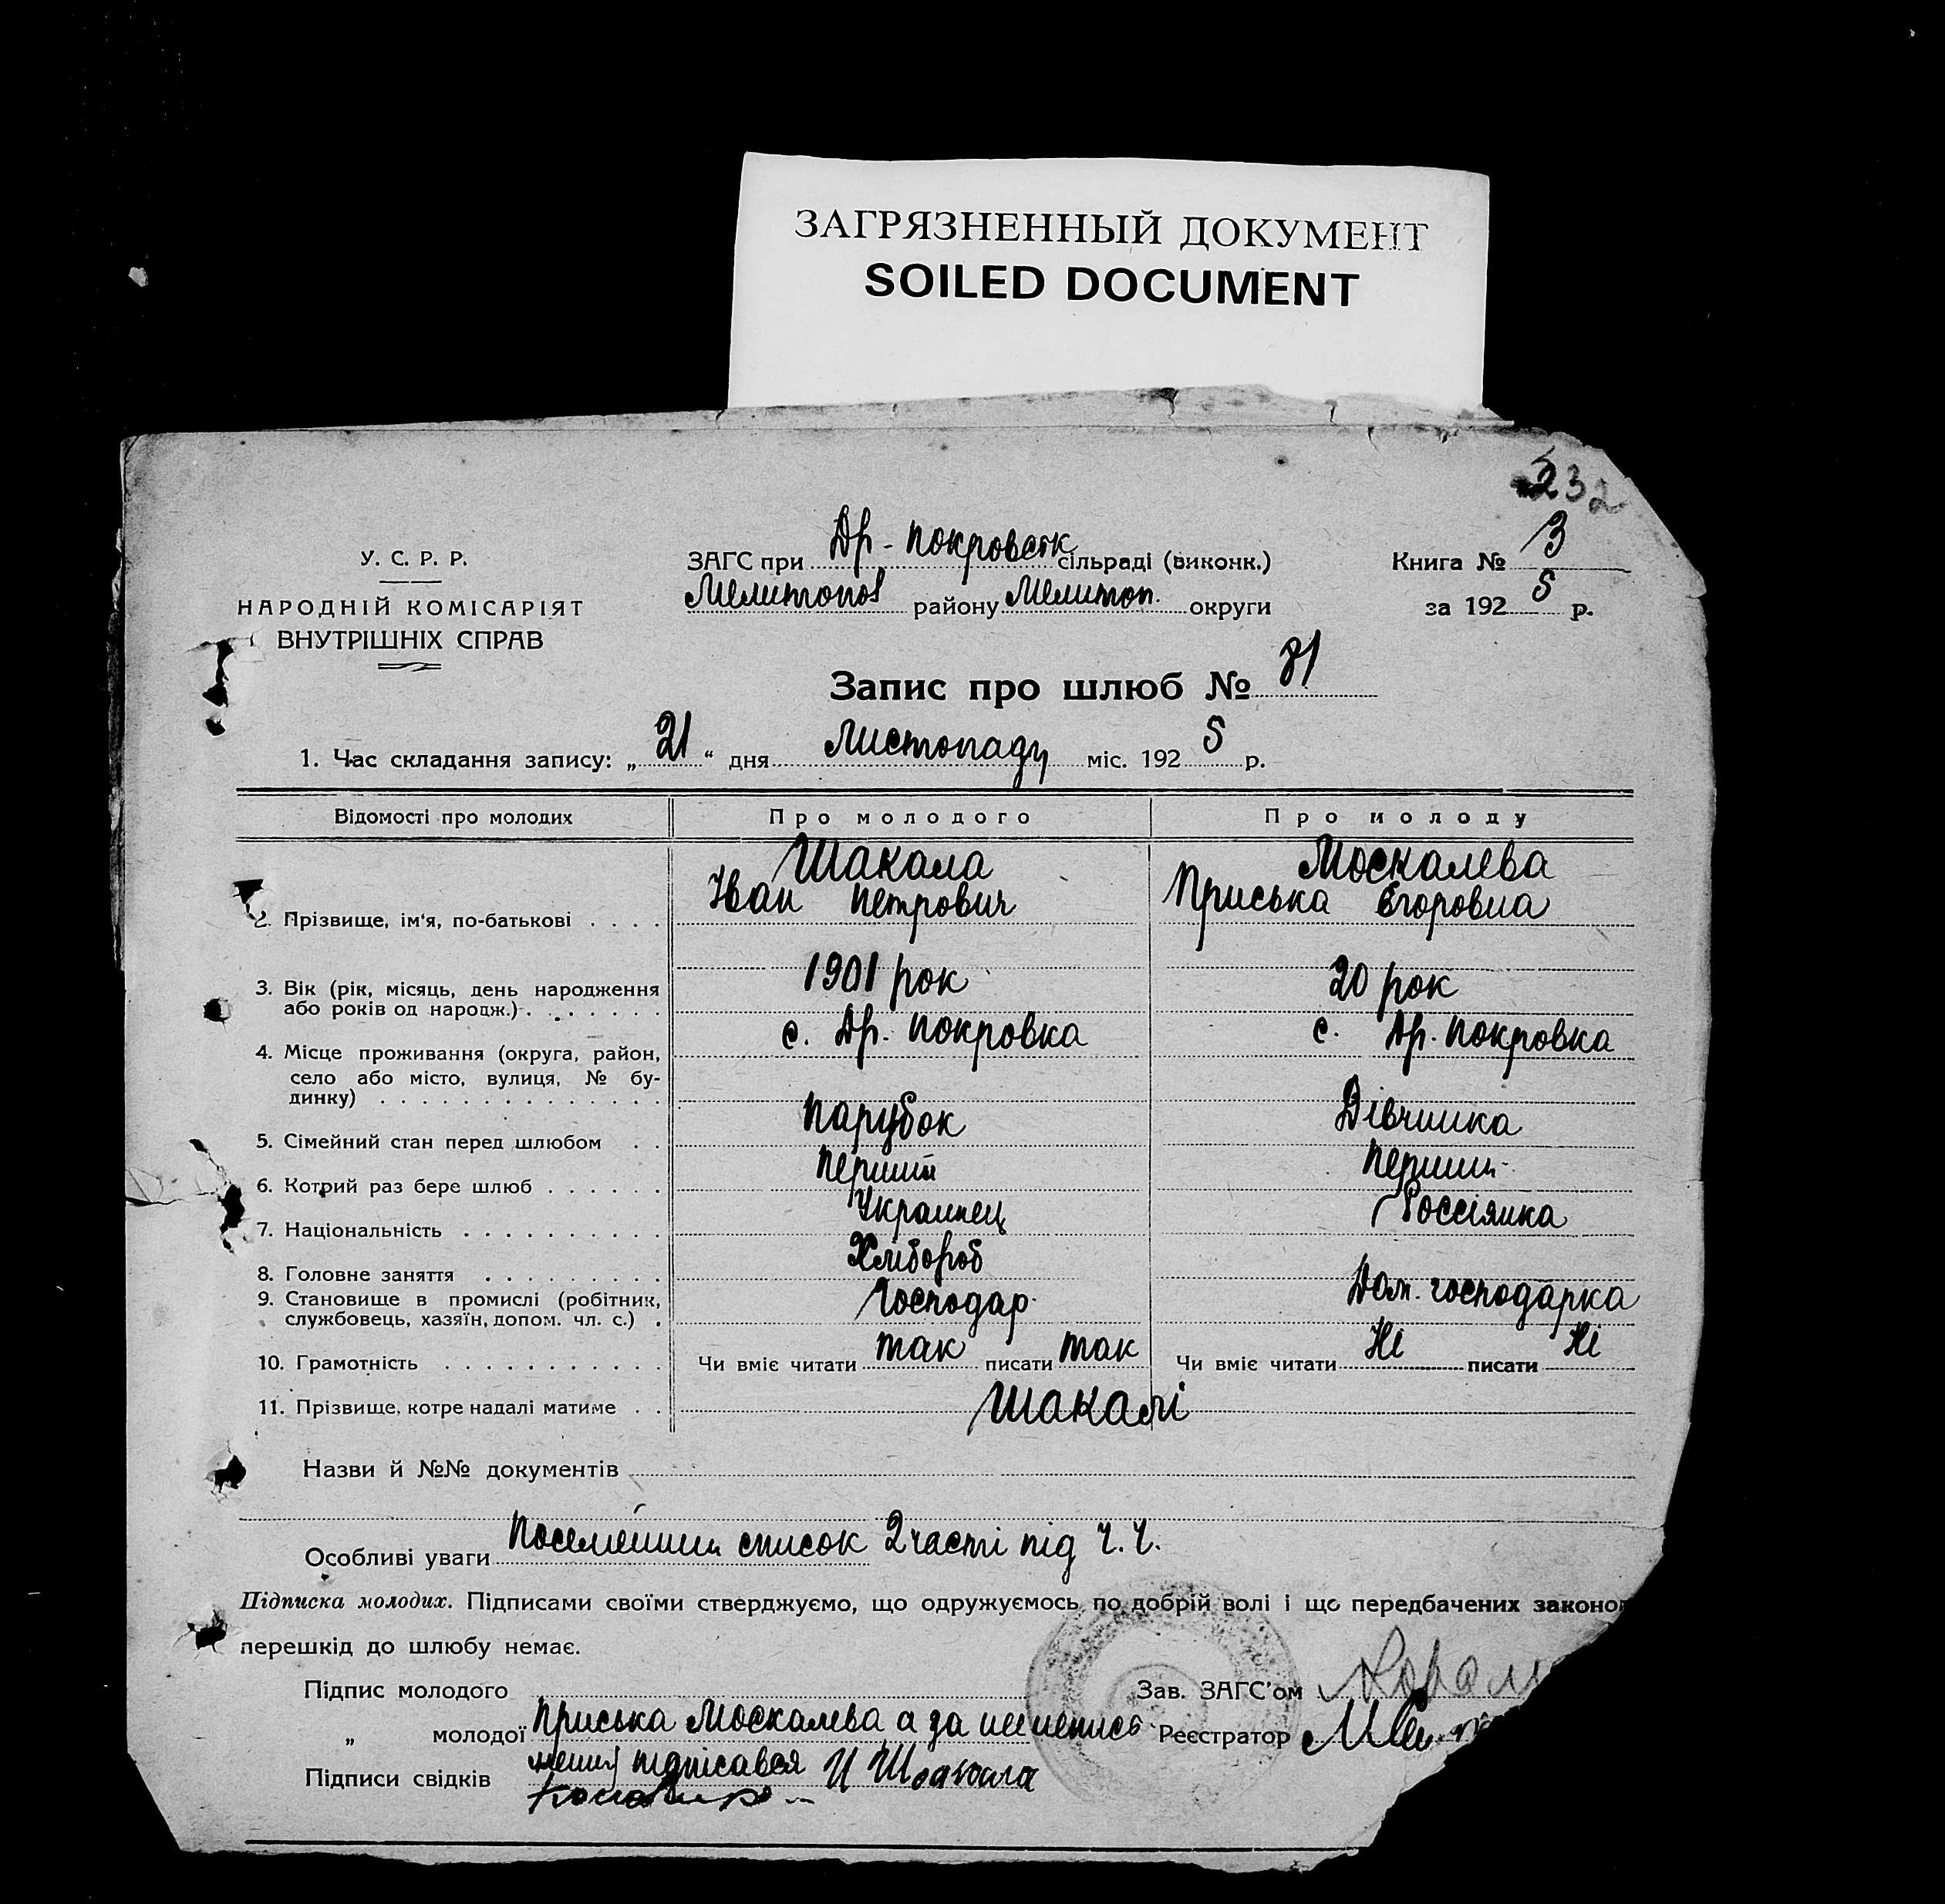 ЗАГРЯЗНЕННЫЙ ДОКУМЕНТ
SOILED DOCUMENT
232
У. С. Р. Р.
НАРОДНІЙ КОМІСАРІЯТ
ВНУТРІШНІХ СПРАВ
ЗАГС при Др-покровськ сільраді (виконк.)
Мелитопол району Мелитоп. округи
Книга № 3
за 1925 р.
Запис про шлюб № 81
1. Час складання запису: „21“ дня Листопаду міс. 1925 р.
Відомості про молодих Про молодого Про молоду
Шакала Москалева
2. Прізвище, ім'я, по-батькові . . . . Іван Петрович Приська Егоровна
3. Вік (рік, місяць, день народження 1901 рок 20 рок
або років од народж.) . . . . . . .
4. Місце проживання (округа, район, с. Др. покровка с. Др. покровка
село або місто, вулиця, № бу-
динку) . . . . . . . . . . . . . .
5. Сімейний стан перед шлюбом . . парубок Дівчинка
6. Котрий раз бере шлюб . . . . . . перший перший
7. Національність . . . . . . . . . . Украинец Россіянка
8. Головне заняття . . . . . . . . . Хлібороб
9. Становище в промислі (робітник, Господар Дом. господарка
службовець, хазяїн, допом. чл. с.) .
10. Грамотність . . . . . . . . . . . Чи вміє читати так писати так Чи вміє читати Ні писати Ні
11. Прізвище, котре надалі матиме . . Шакалі
Назви й №№ документів
Особливі уваги Посемейний список 2 часті під Ч. Ч.
Підписка молодих. Підписами своїми стверджуємо, що одружуємось по добрій волі і що передбачених законо
перешкід до шлюбу немає.
Підпис молодого Зав. ЗАГС'ом
„ молодої Приська Москалева а за неи Реєстратор
Підписи свідків підписався И Шакала